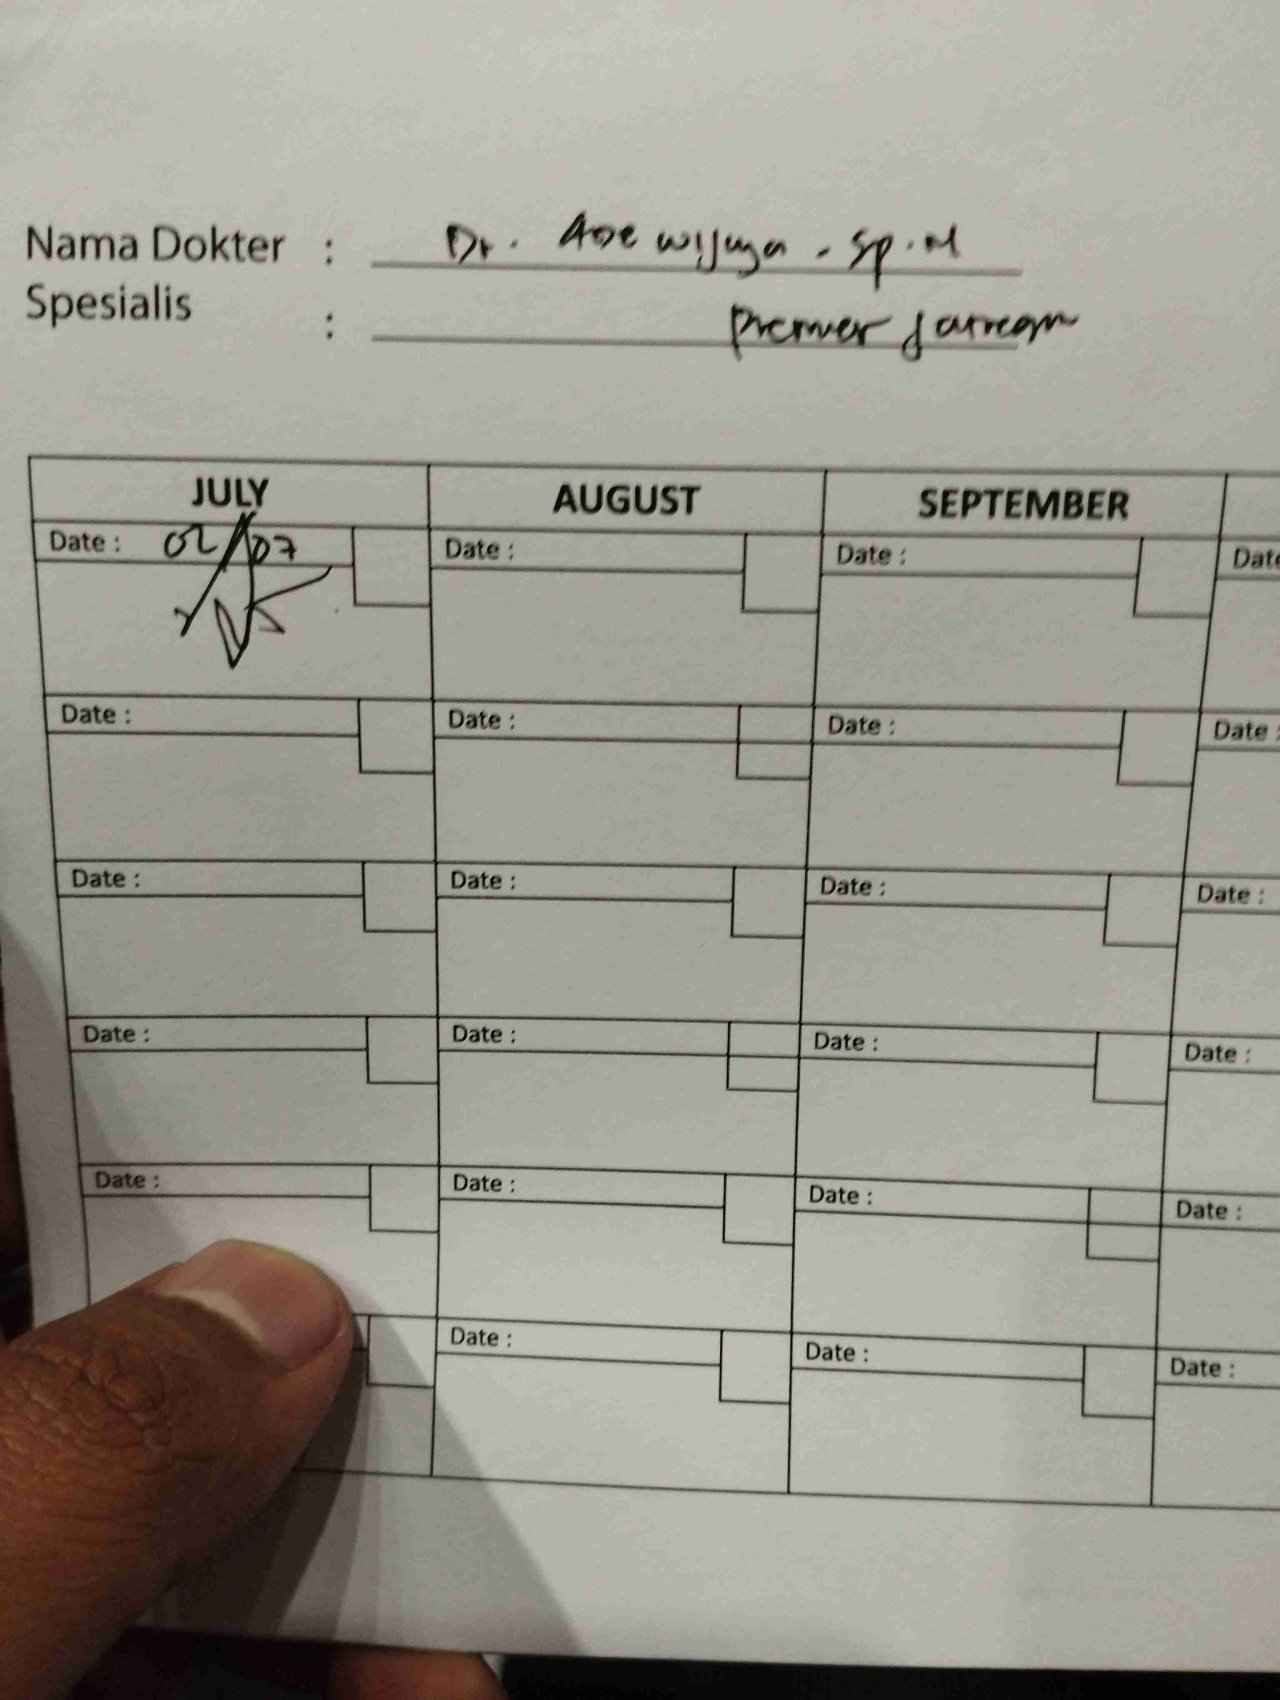 Nama Dokter : Dr. Ade Wijaya - Sp.M
Spesialis :
Premier
JULY AUGUST SEPTEMBER
Date : 02/07 Date : Date : Date
Date : Date : Date : Date :
Date : Date : Date : Date :
Date : Date : Date : Date :
Date : Date : Date : Date :
Date : Date : Date :